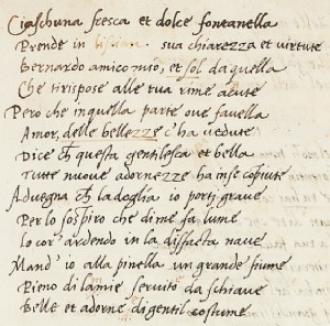 Ciaschuna fresca et dolce fontanella
Prende in sua chiarezza et virtute
Bernardo amico mio, et sol da quella
Che ti rispose alle tua rime acute
Pero che in quella parte ove favella
Amor, delle bellezze c'ha vedute
Dice ch questa gentilesca et bella
Tutte nuove adornezze ha in se compiute
Advegna ch la doglia io porti grave
Per lo sospiro che di me fa lume
Lo cor' ardendo in la disfacta nave
Mand' io alla pinella un grande fiume
Pieno di lamie servito da schiave
Belle et adorne di gentil costume